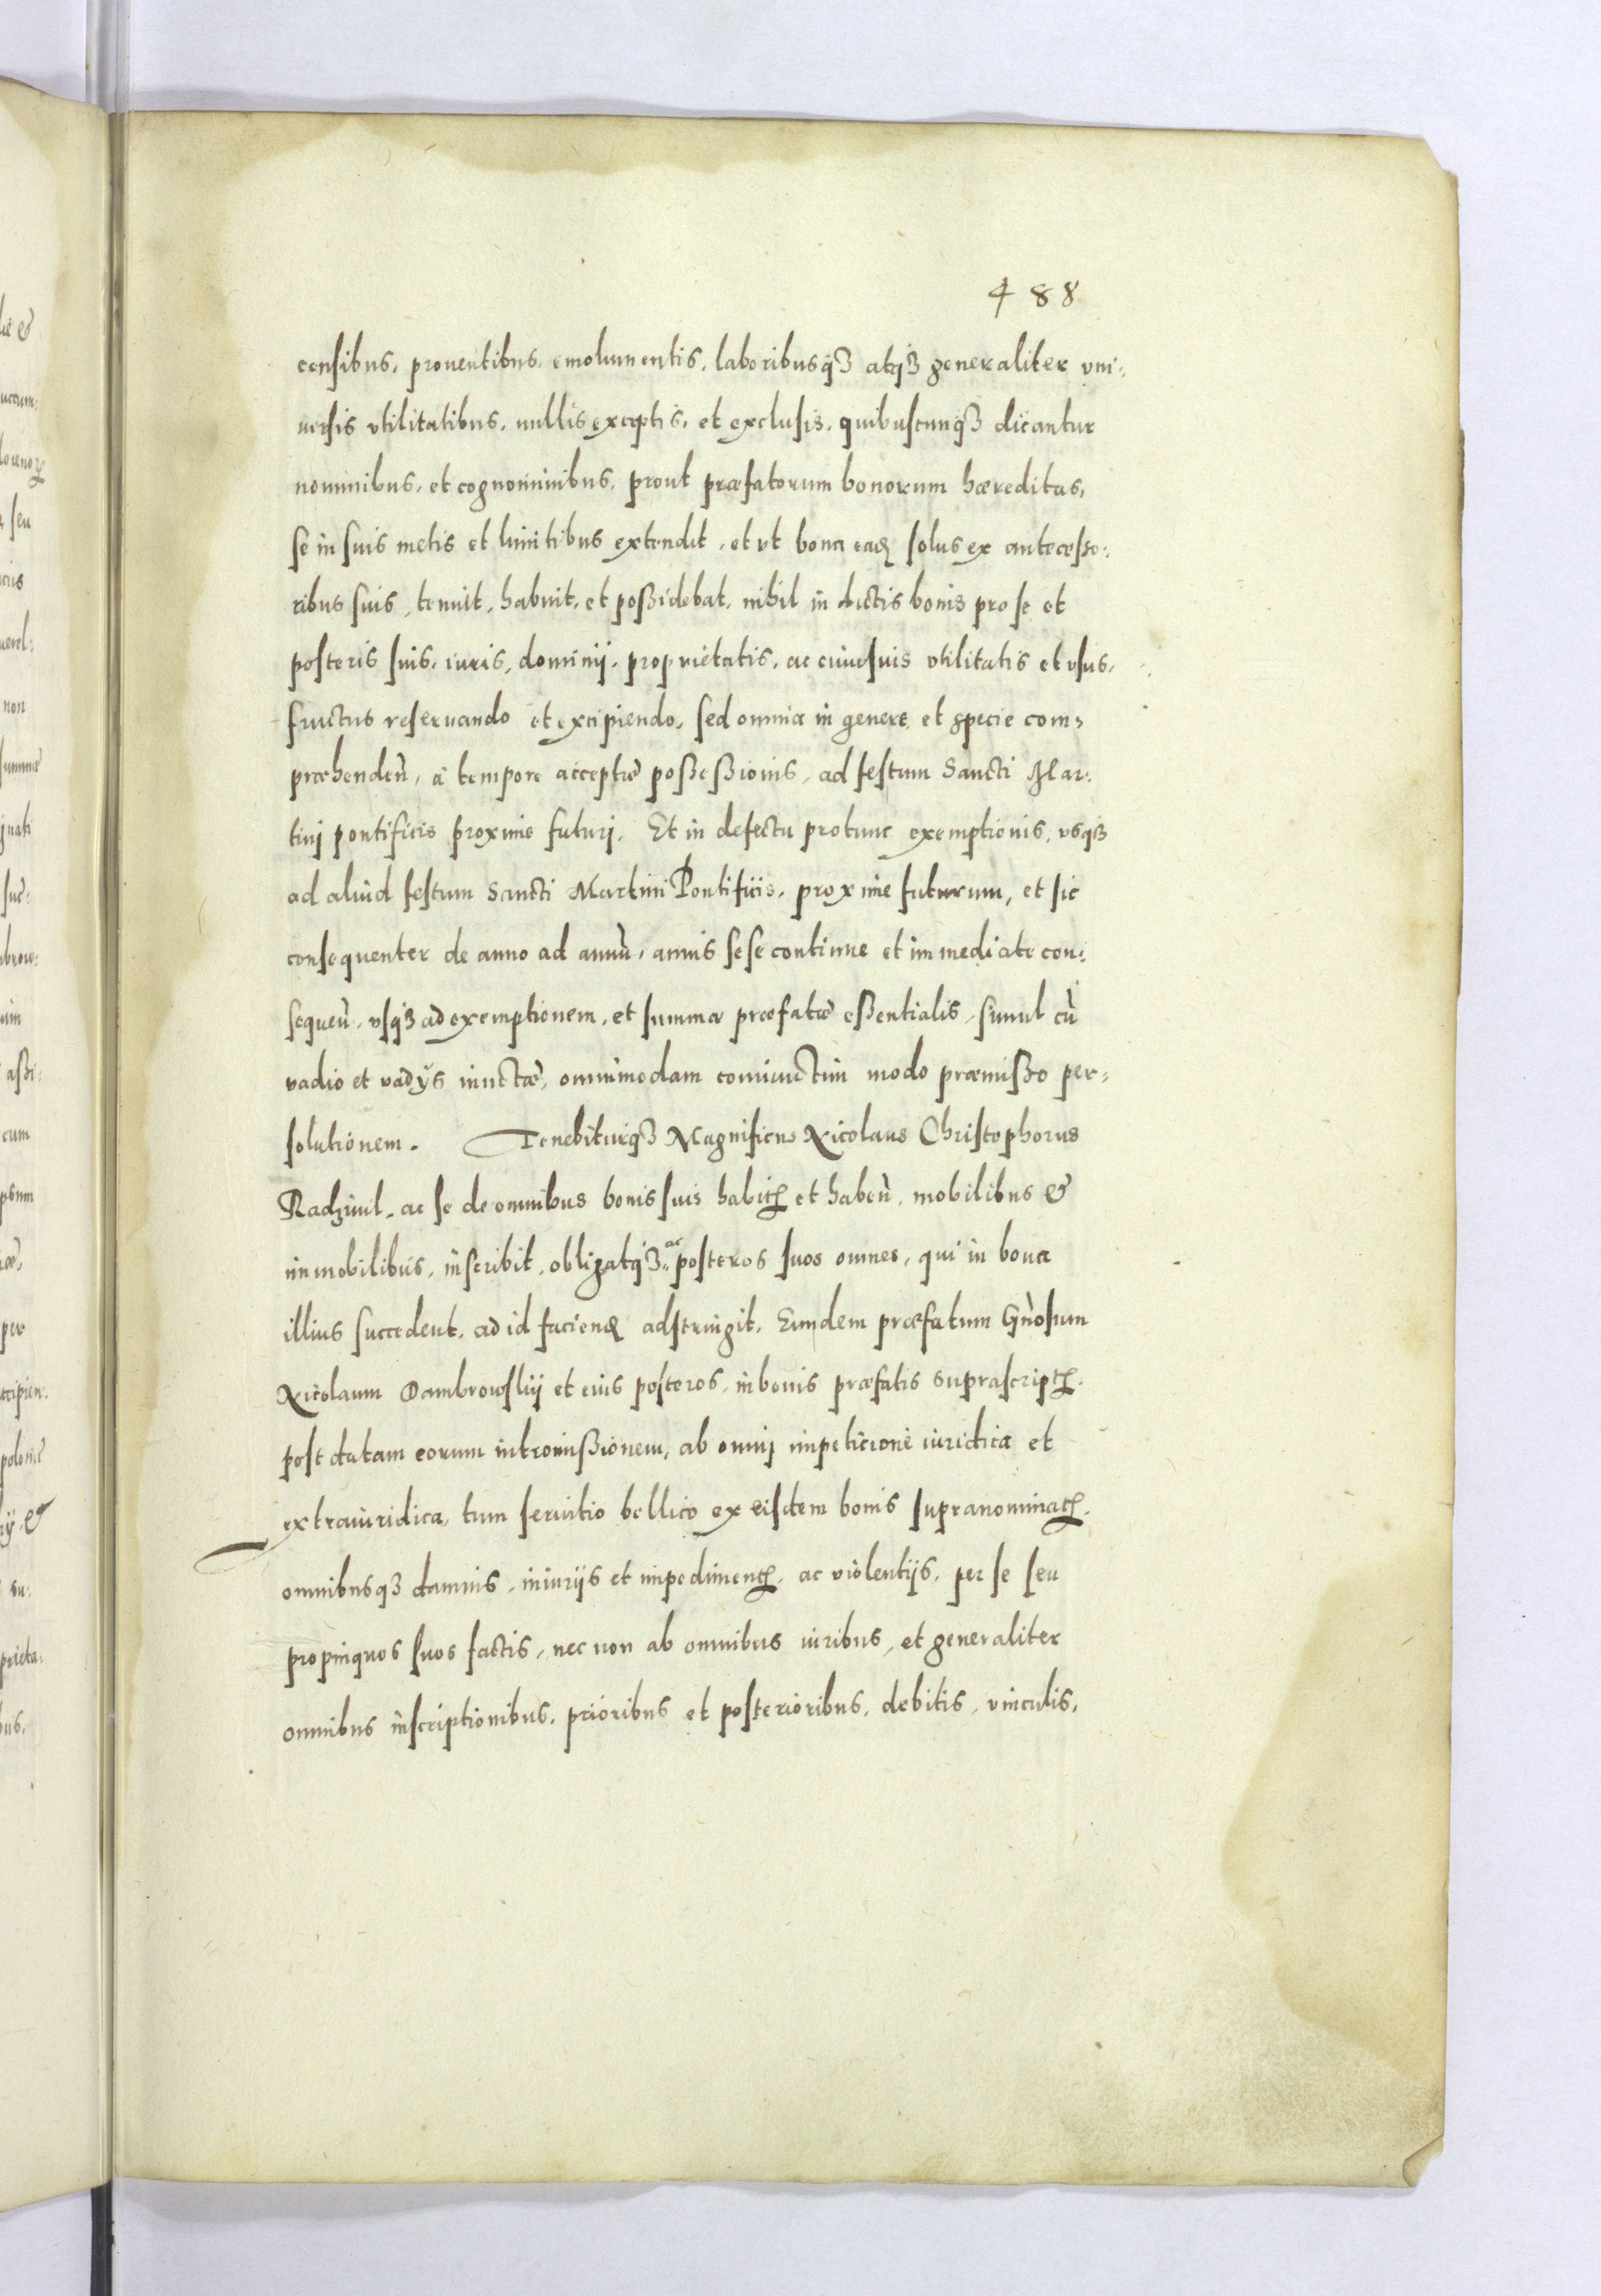 488
censibus, prouentibus, emolumentis, laboribusqȝ atqȝ generaliter vni:
uersis vtilitatibus, nullis exceptis, et exclusis, quibuscunqȝ dicantur
nominibus, et cognominibus, prout præfatorum bonorum hæreditas,
se in suis metis et limitibus extendit, et vt bona eadę solus ex antecesso:
ribus suis, tenuit, habuit, et possidebat, nihil in dictis bonis pro se et
posteris suis, iuris, dominij, proprietatis, ac cuiusuis vtilitatis et vsus,
fructus reseruando et excipiendo, sed omnia in genere et specie com,
præhendeñ, à tempore acceptæ possessionis, ad festum Sancti Mar:
tinj pontificis proxime futurj. Et in defectu protunc exemptionis, vsqȝ
ad aliud festum Sancti Martini Pontificis, proxime futurum, et sic
consequenter de anno ad annũ, annis sese continue et immediate con:
sequeñ, vsqȝ ad exemptionem, et summæ præfatæ essentialis, simul cũ
vadio et vadys inuctæ, omnimodam coniunctim modo præmisso per,
solutionem. Tenebiturqȝ Magnificus Nicolaus Christophorus
Radziuil, ac se de omnibus bonis suis habitꝭ et habeñ, mobilibus &
immobilibus, inscribit, obligatqȝ, ac posteros suos omnes, qui in bona
illius succedent, ad id faciendę adstringit. Eundem præfatum Gñosum
Nicolaum Dambrowskij et eius posteros, in bonis præfatis suprascriptꝭ.
post datam eorum intromissionem, ab omnj impeticione iuridica et
extraiuridica, tum seruitio bellico ex eisdem bonis supranominatꝭ.
omnibusqȝ damnis, iniurijs et impedimentꝭ, ac violentijs, per se seu
propinquos suos factis, nec non ab omnibus iuribus, et generaliter
omnibus inscriptionibus, prioribus et posterioribus, debitis, vinculis,